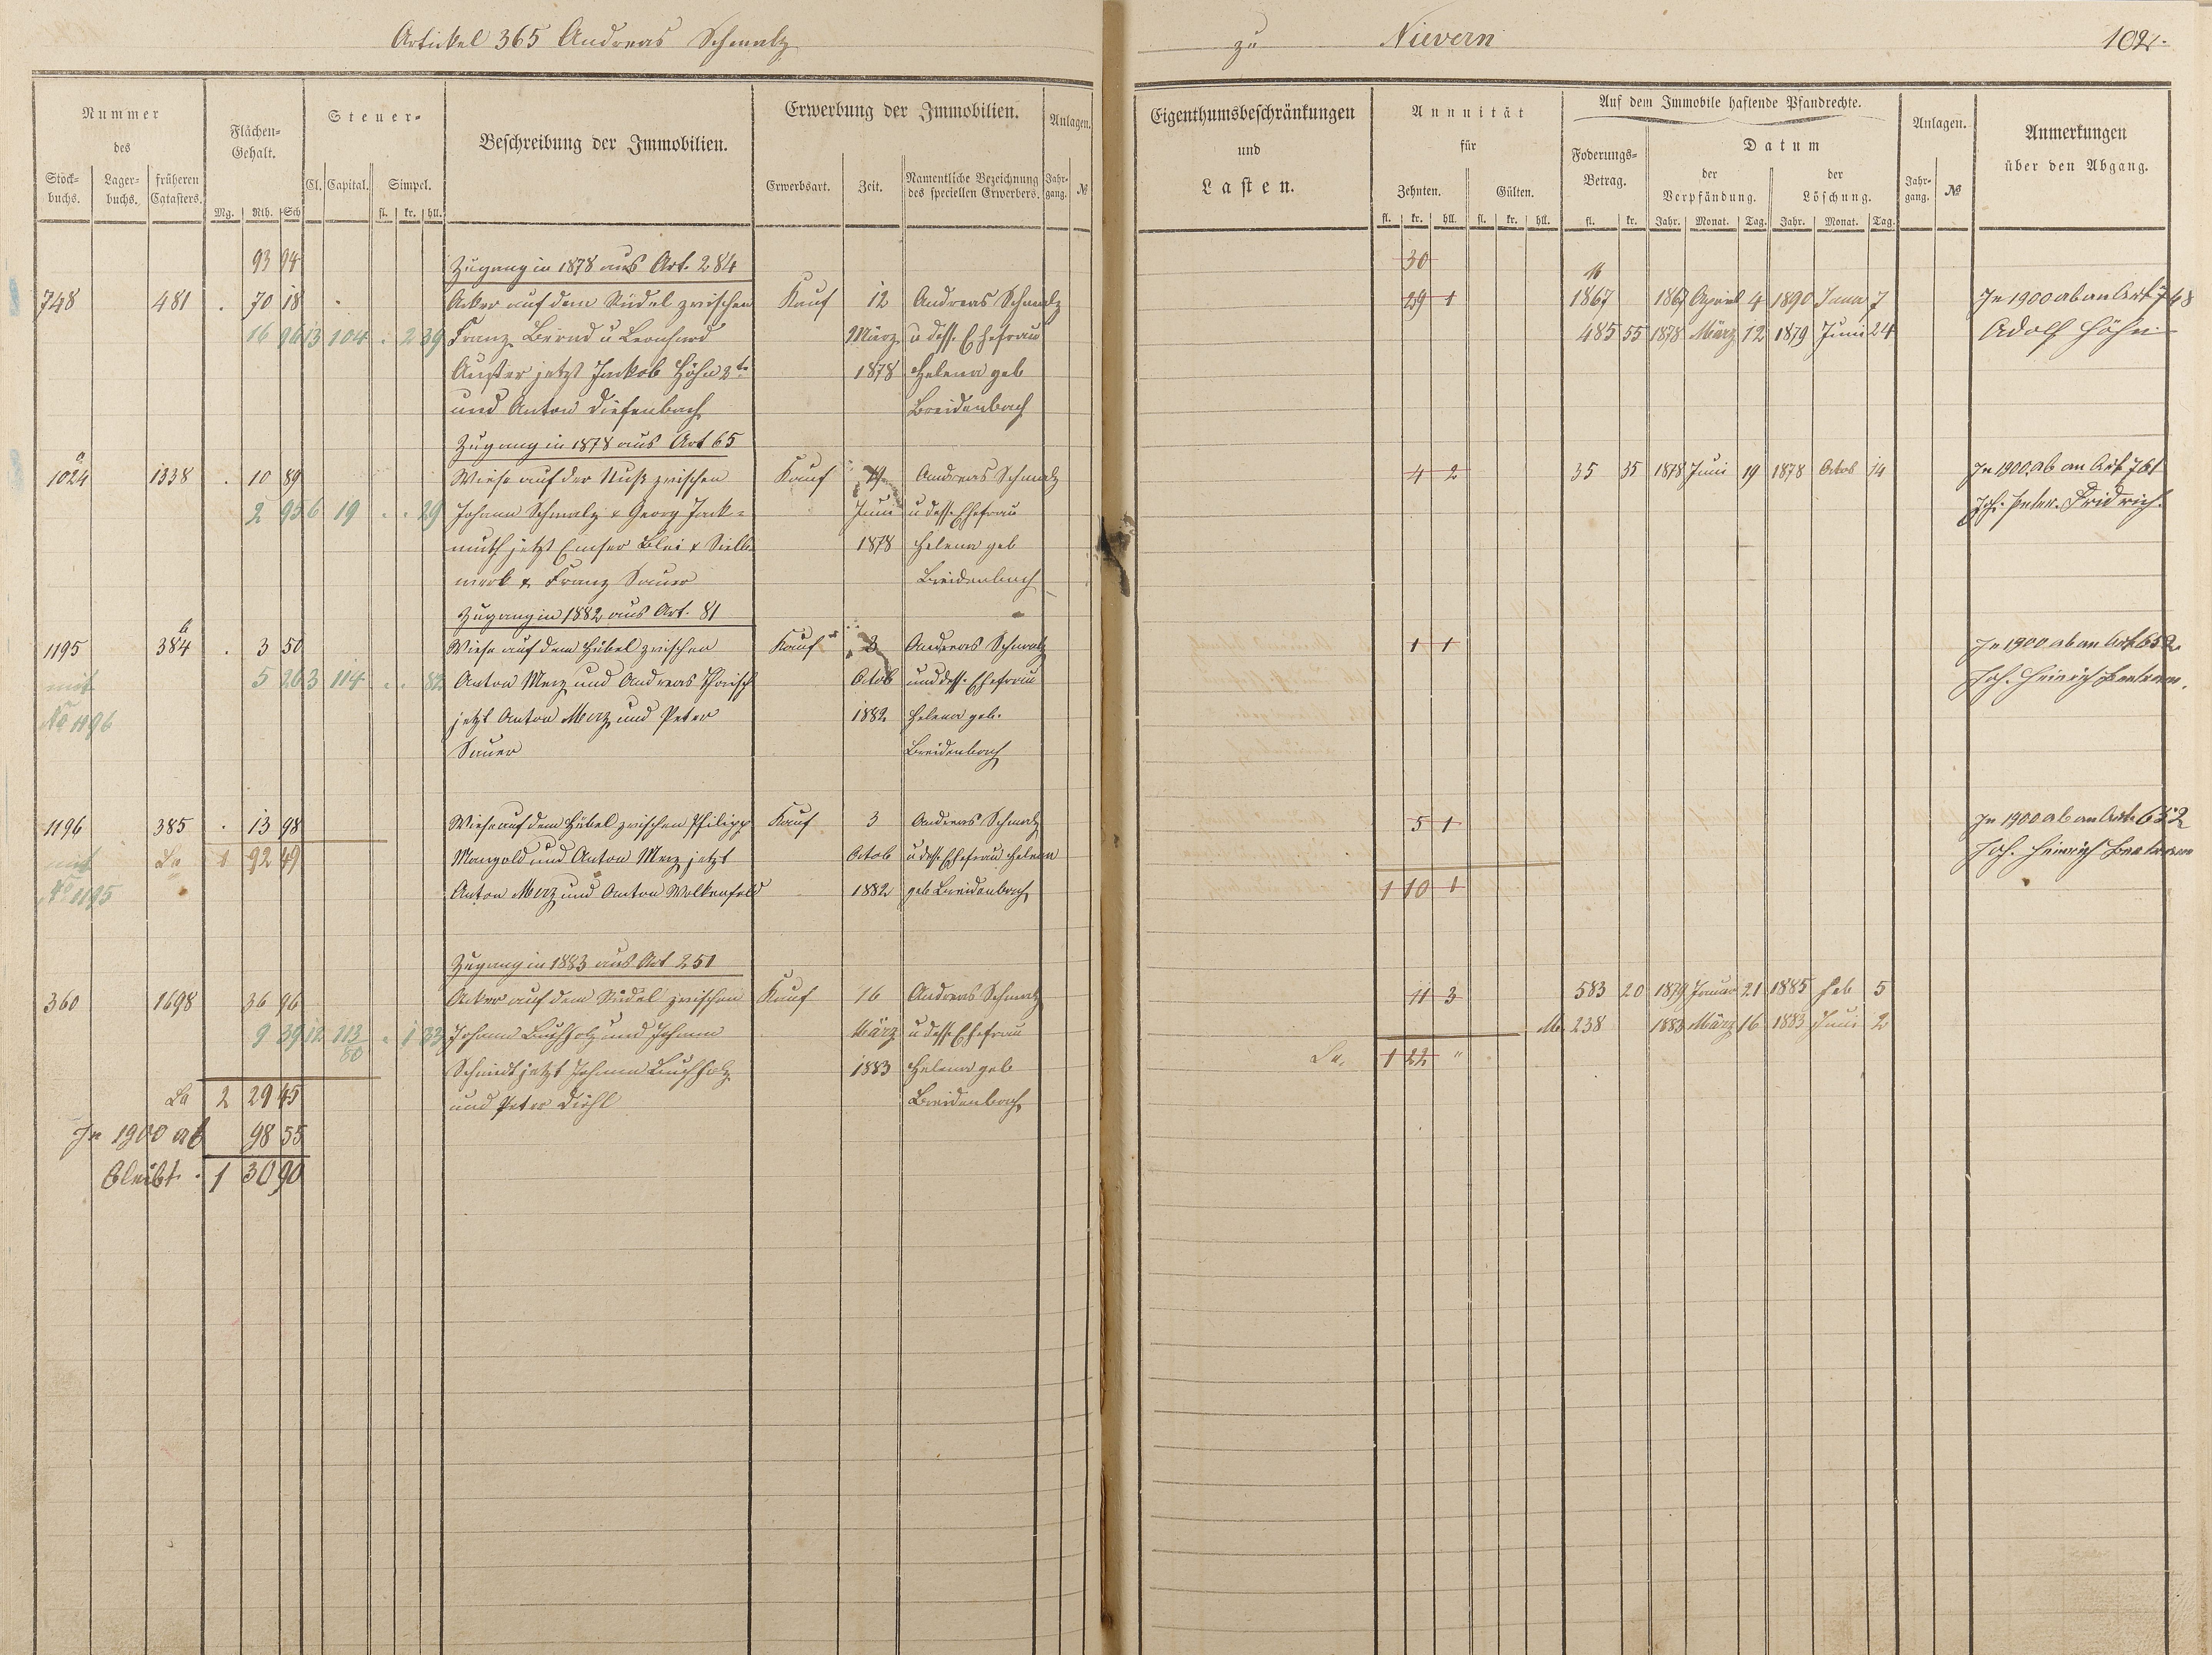 Artickel 365 Andreas Schmalz
zu Nievern 102.
Nummer des
Stockbuchs. Lagerbuchs. früheren Catasters.
Flächen-Gehalt.
Mg. Rth. Sch
Steuer-
Cl. Capital. Simpel.
fl. kr. hll.
Beschreibung der Immobilien.
Erwerbung der Immobilien.
Erwerbsart. Zeit. Namentliche Bezeichnung des speciellen Erwerbers.
Anlagen.
Jahrgang. №
Eigenthumsbeschränkungen und Lasten.
Annuität für
Zehnten. Gülten.
fl. kr. hll. fl. kr. hll.
Auf dem Immobile haftende Pfandrechte.
Foderungs-Betrag.
fl. kr.
Datum
der Verpfändung. der Löschung.
Jahr. Monat. Tag. Jahr. Monat. Tag.
Anlagen.
Jahrgang. №
Anmerkungen über den Abgang.
93 94 Zugang in 1878 aus Art. 284 30
748 481 . 70 18 Acker auf dem Rüdel zwischen Kauf 12 Andreas Schmalz 29 1 1867 16 1867 April 4 1890 Juni 7 In 1900 ab an Art 748
16 96 13 104 . 2 39 Franz Bernd u Leonhard März u dess. Ehefrau 485 55 1878 März 12 1879 Juni 24 Adolf Höhn
jetzt Jackob Höhn 2te 1878 Helena geb
und Anton Diefenbach Breidenbach
Zugang in 1878 aus Art 65
1024 a 1338 . 10 89 Wiese auf der Nuß zwischen Kauf 19 Andreas Schmalz 4 2 35 35 1878 Juni 19 1878 Octob 14 In 1900 ab an Art 761
2 95 6 19 . . 29 Johann Schmalz & Georg Jack= Juni u dess. Ehefrau Joh. Peter Fridrich.
muth jetzt Emser Blei & Silb 1878 Helena geb
werk & Franz Sauer Breidenbach
Zugang in 1882 aus Art. 81
1195 384 b . 3 50 Wiese auf dem Hübel zwischen Kauf 3 Andreas Schmalz 1 1 In 1900 ab an Art 652
mit 5 26 3 114 . . 82 Anton Merz und Andreas Octob und dess. Ehefrau Joh. Heinrich
No 1196 jetzt Anton Merz und Peter 1882 Helena geb.
Sauer Breidenbach
1196 385 . 13 98 Wiese auf dem Hübel zwischen Philipp Kauf 3 Andreas Schmalz 5 1 In 1900 ab an Art. 652
mit La 1 92 49 Mangold und Anton Merz jetzt Octob u dess. Ehefrau Helena Joh. Heinrich
No 1195 Anton Merz und Anton Wolkenfeld 1882 geb Breidenbach 1 10 1
Zugang in 1883 aus Art 251
360 1698 36 96 Acker auf dem Rüdel zwischen Kauf 16 Andreas Schmalz 11 3 583 20 1879 Januar 21 1885 Feb 5
9 39 12 113 80 . 1 33 Johann Buchholz und Johann März u dess. Ehefrau M. 238 1883 März 16 1883 Juni 2
Schmidt jetzt Johann Buchholz 1883 Helena geb La. 1 22 "
La 2 29 45 und Peter Diehl Breidenbach
In 1900 ab 98 55
bleibt. 1 30 90